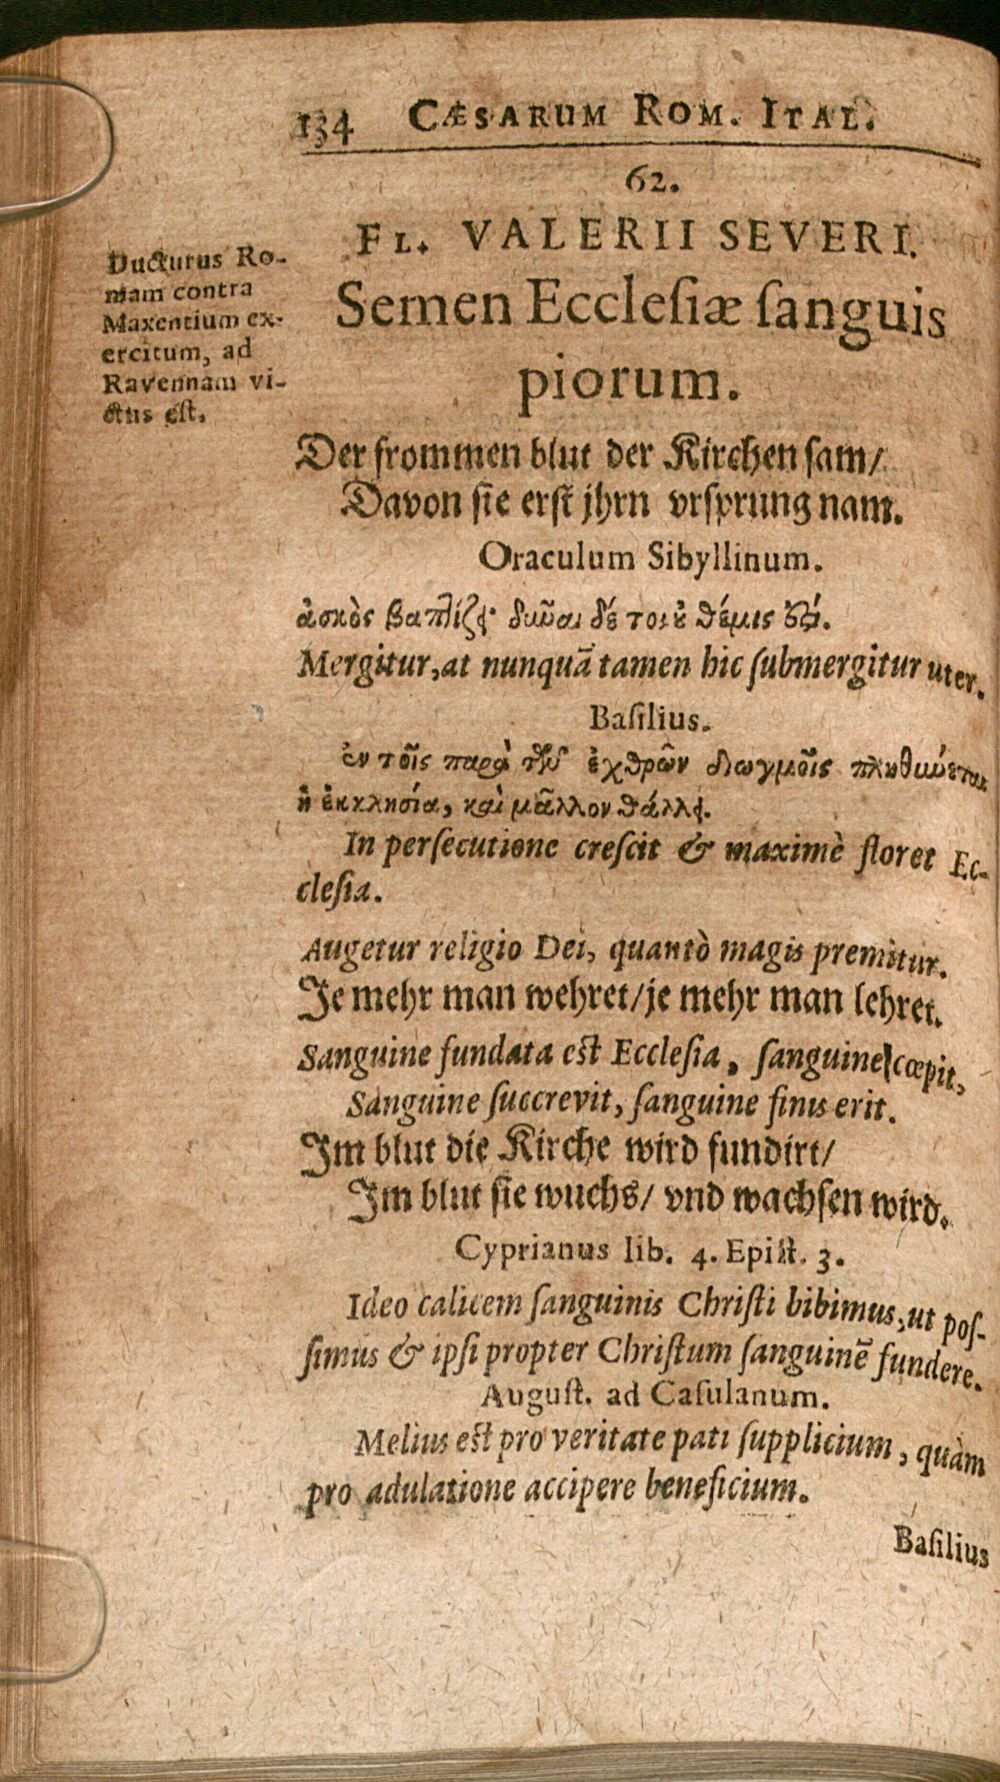 134 CÆSARUM ROM. ITAL.
62.
FL. VALERII SEVERI.
Ducturus Ro-
mam contra
Maxentium ex-
ercitum, ad
Ravennam vi-
ctus est.
Semen Ecclesiæ sanguis
piorum.
Der frommen blut der Kirchen sam/
Davon sie erst jhrn vrsprung nam.
Oraculum Sibyllinum.
ἀσκὸς βαπτίζῃ· δῦναι δέ τοι ȣ̓ θέμις ἐςί.
Mergitur, at nunquã tamen hic submergitur uter.
Basilius.
ἐν τοῖς παρὰ τῶν ἐχθρῶν διωγμοῖς πληθύνεται
ἡ ἐκκλησία, καὶ μᾶλλον θάλλει.
In persecutione crescit & maximè floret Ec-
clesia.
Augetur religio Dei, quantò magis premitur.
Je mehr man wehret/je mehr man lehret.
Sanguine fundata est Ecclesia, sanguine cœpit,
Sanguine succrevit, sanguine finis erit.
Im blut die Kirche wird fundirt/
Im blut sie wuchs/ vnd wachsen wird.
Cyprianus lib. 4. Epist. 3.
Ideo calicem sanguinis Christi bibimus, ut pos-
simus & ipsi propter Christum sanguinẽ fundere.
August. ad Casulanum.
Melius est pro veritate pati supplicium, quàm
pro adulatione accipere beneficium.
Basilius